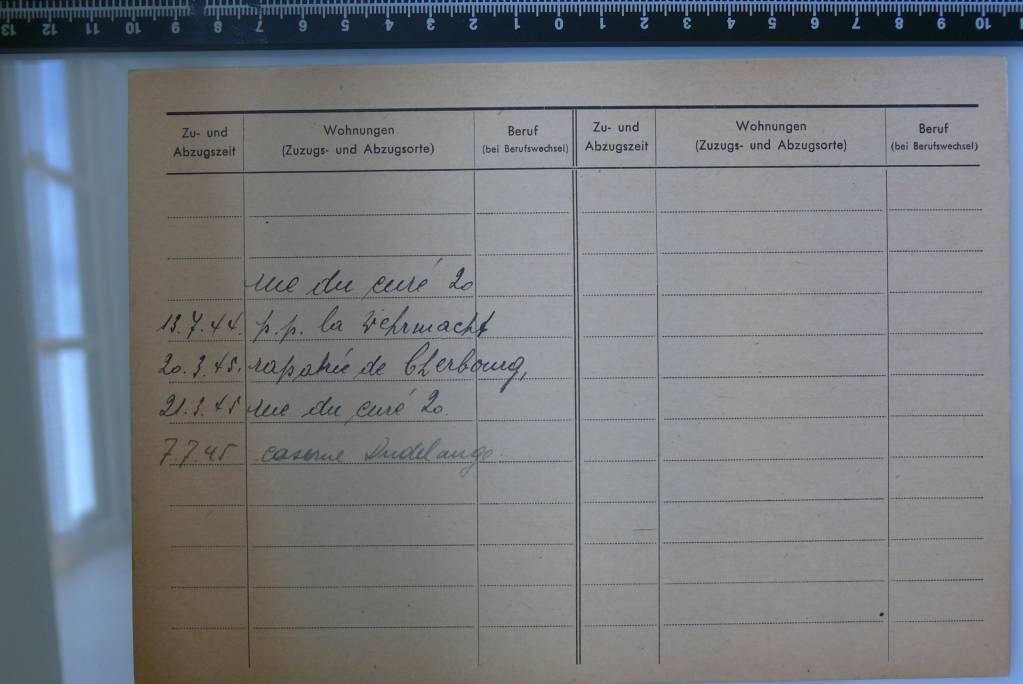 13 12 11 10 9 8 7 6 5 4 3 2 1 0 1 2 3 4 5 6 7 8 9 10
Zu- und Abzugszeit
Wohnungen (Zuzugs- und Abzugsorte)
Beruf (bei Berufswechsel)
Zu- und Abzugszeit
Wohnungen (Zuzugs- und Abzugsorte)
Beruf (bei Berufswechsel)
rue du curé 20
13.7.44. p.p. la Wehrmacht
20.3.45. rapatrié de Cherbourg,
21.3.45 rue du curé 20.
7.7.45 caserne Dudelange